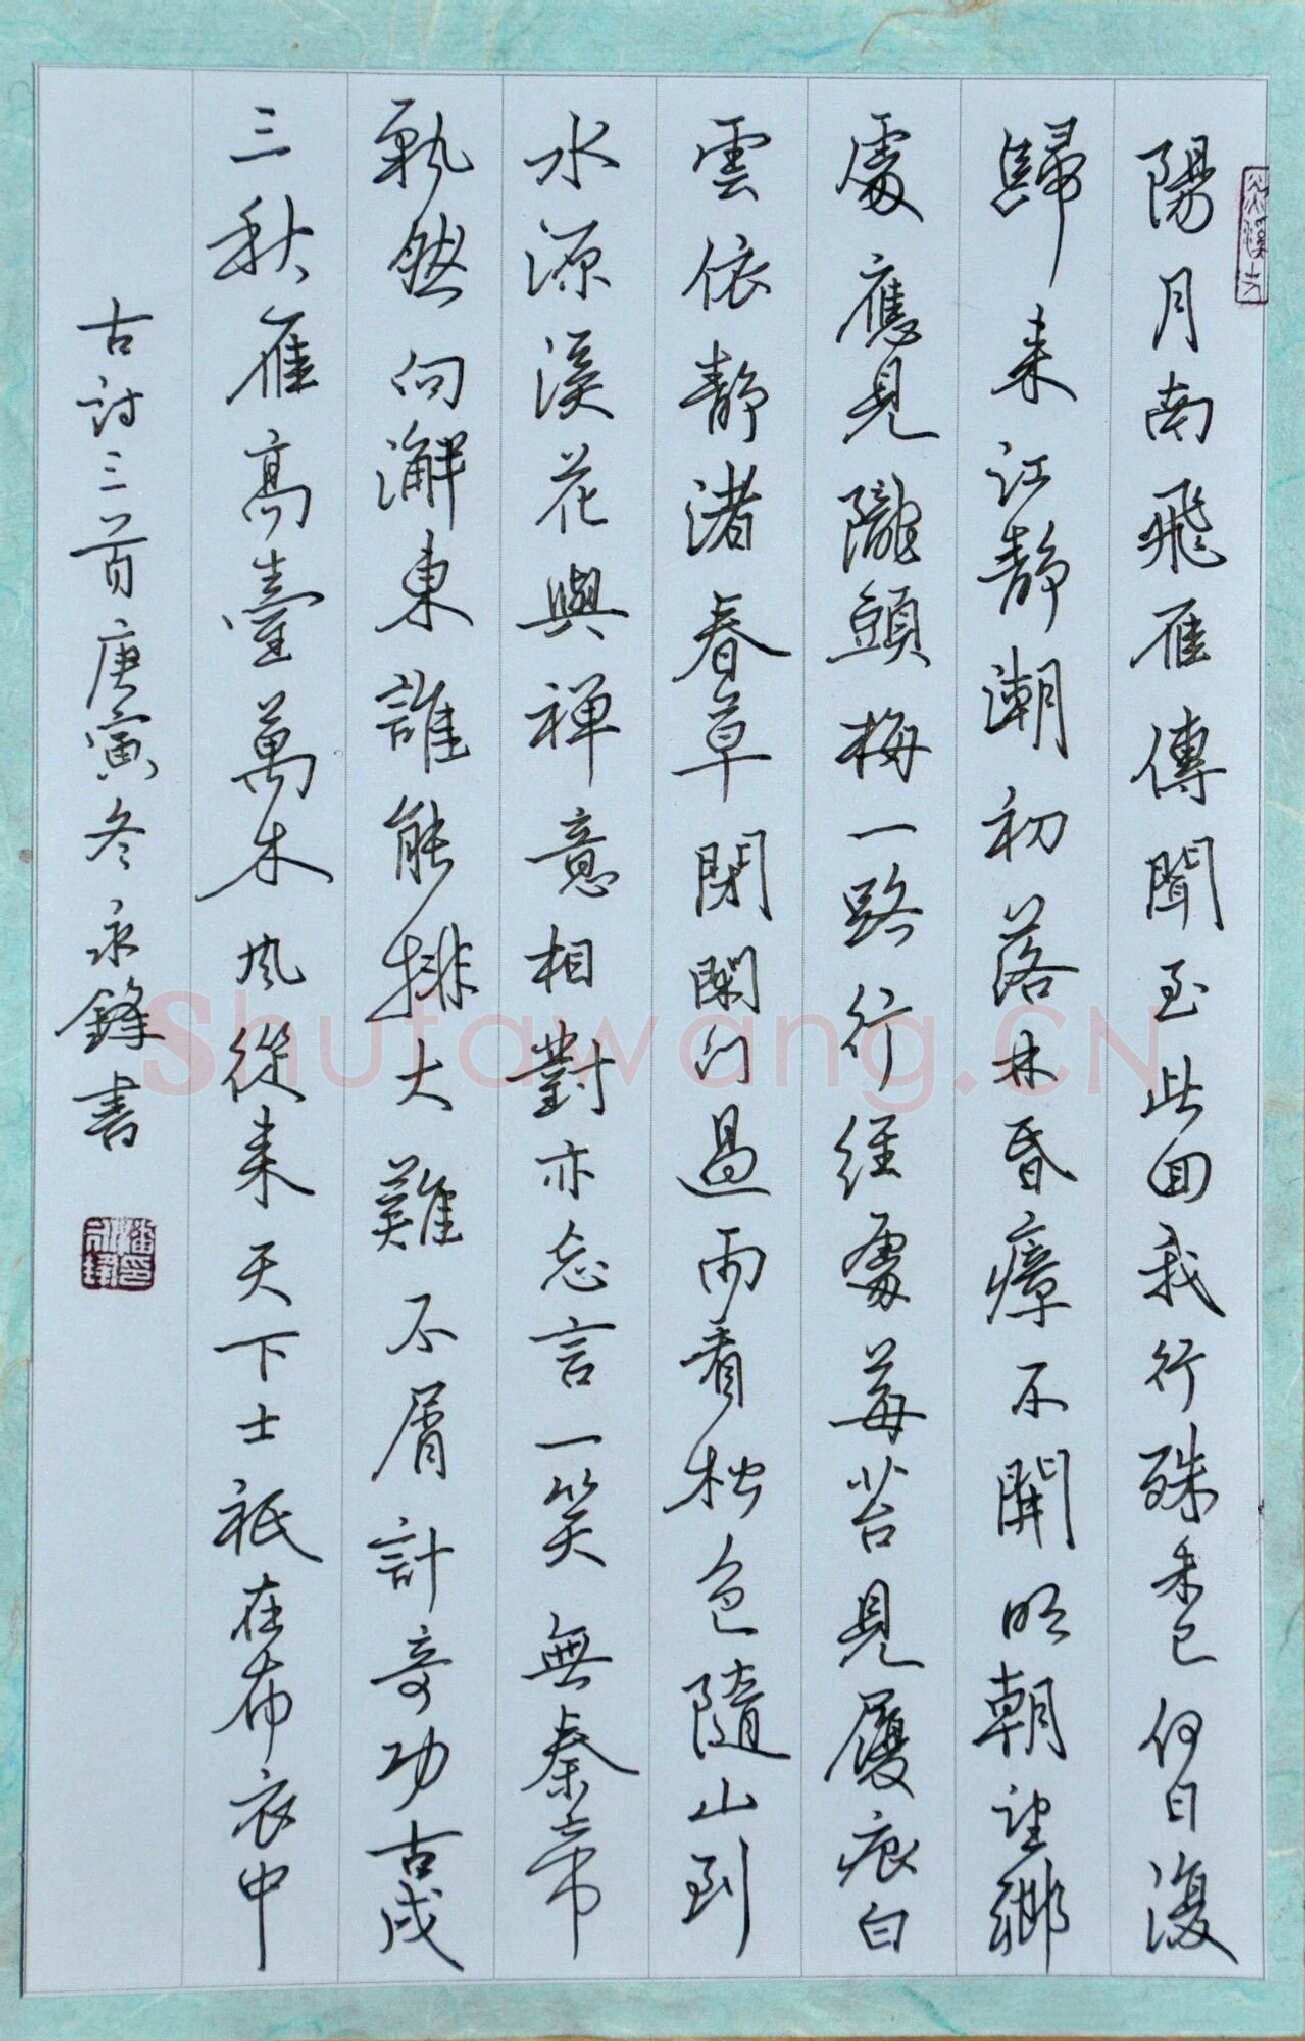 陽月南飛雁傳聞至此回我行殊未已何日復
歸来江静潮初落林昏瘴不開明朝望鄉
處應見隴頭梅一路行經處莓苔見履痕白
雲依静渚春草閉閑门過雨看松色隨山到
水源溪花與禪意相對亦忘言一笑無秦帝
飄然向澥東誰能排大難不屑計奇功古戍
三秋雁高臺萬木风從来天下士祇在布衣中
古詩三首庚寅冬永鋒書
Shufawang.CN